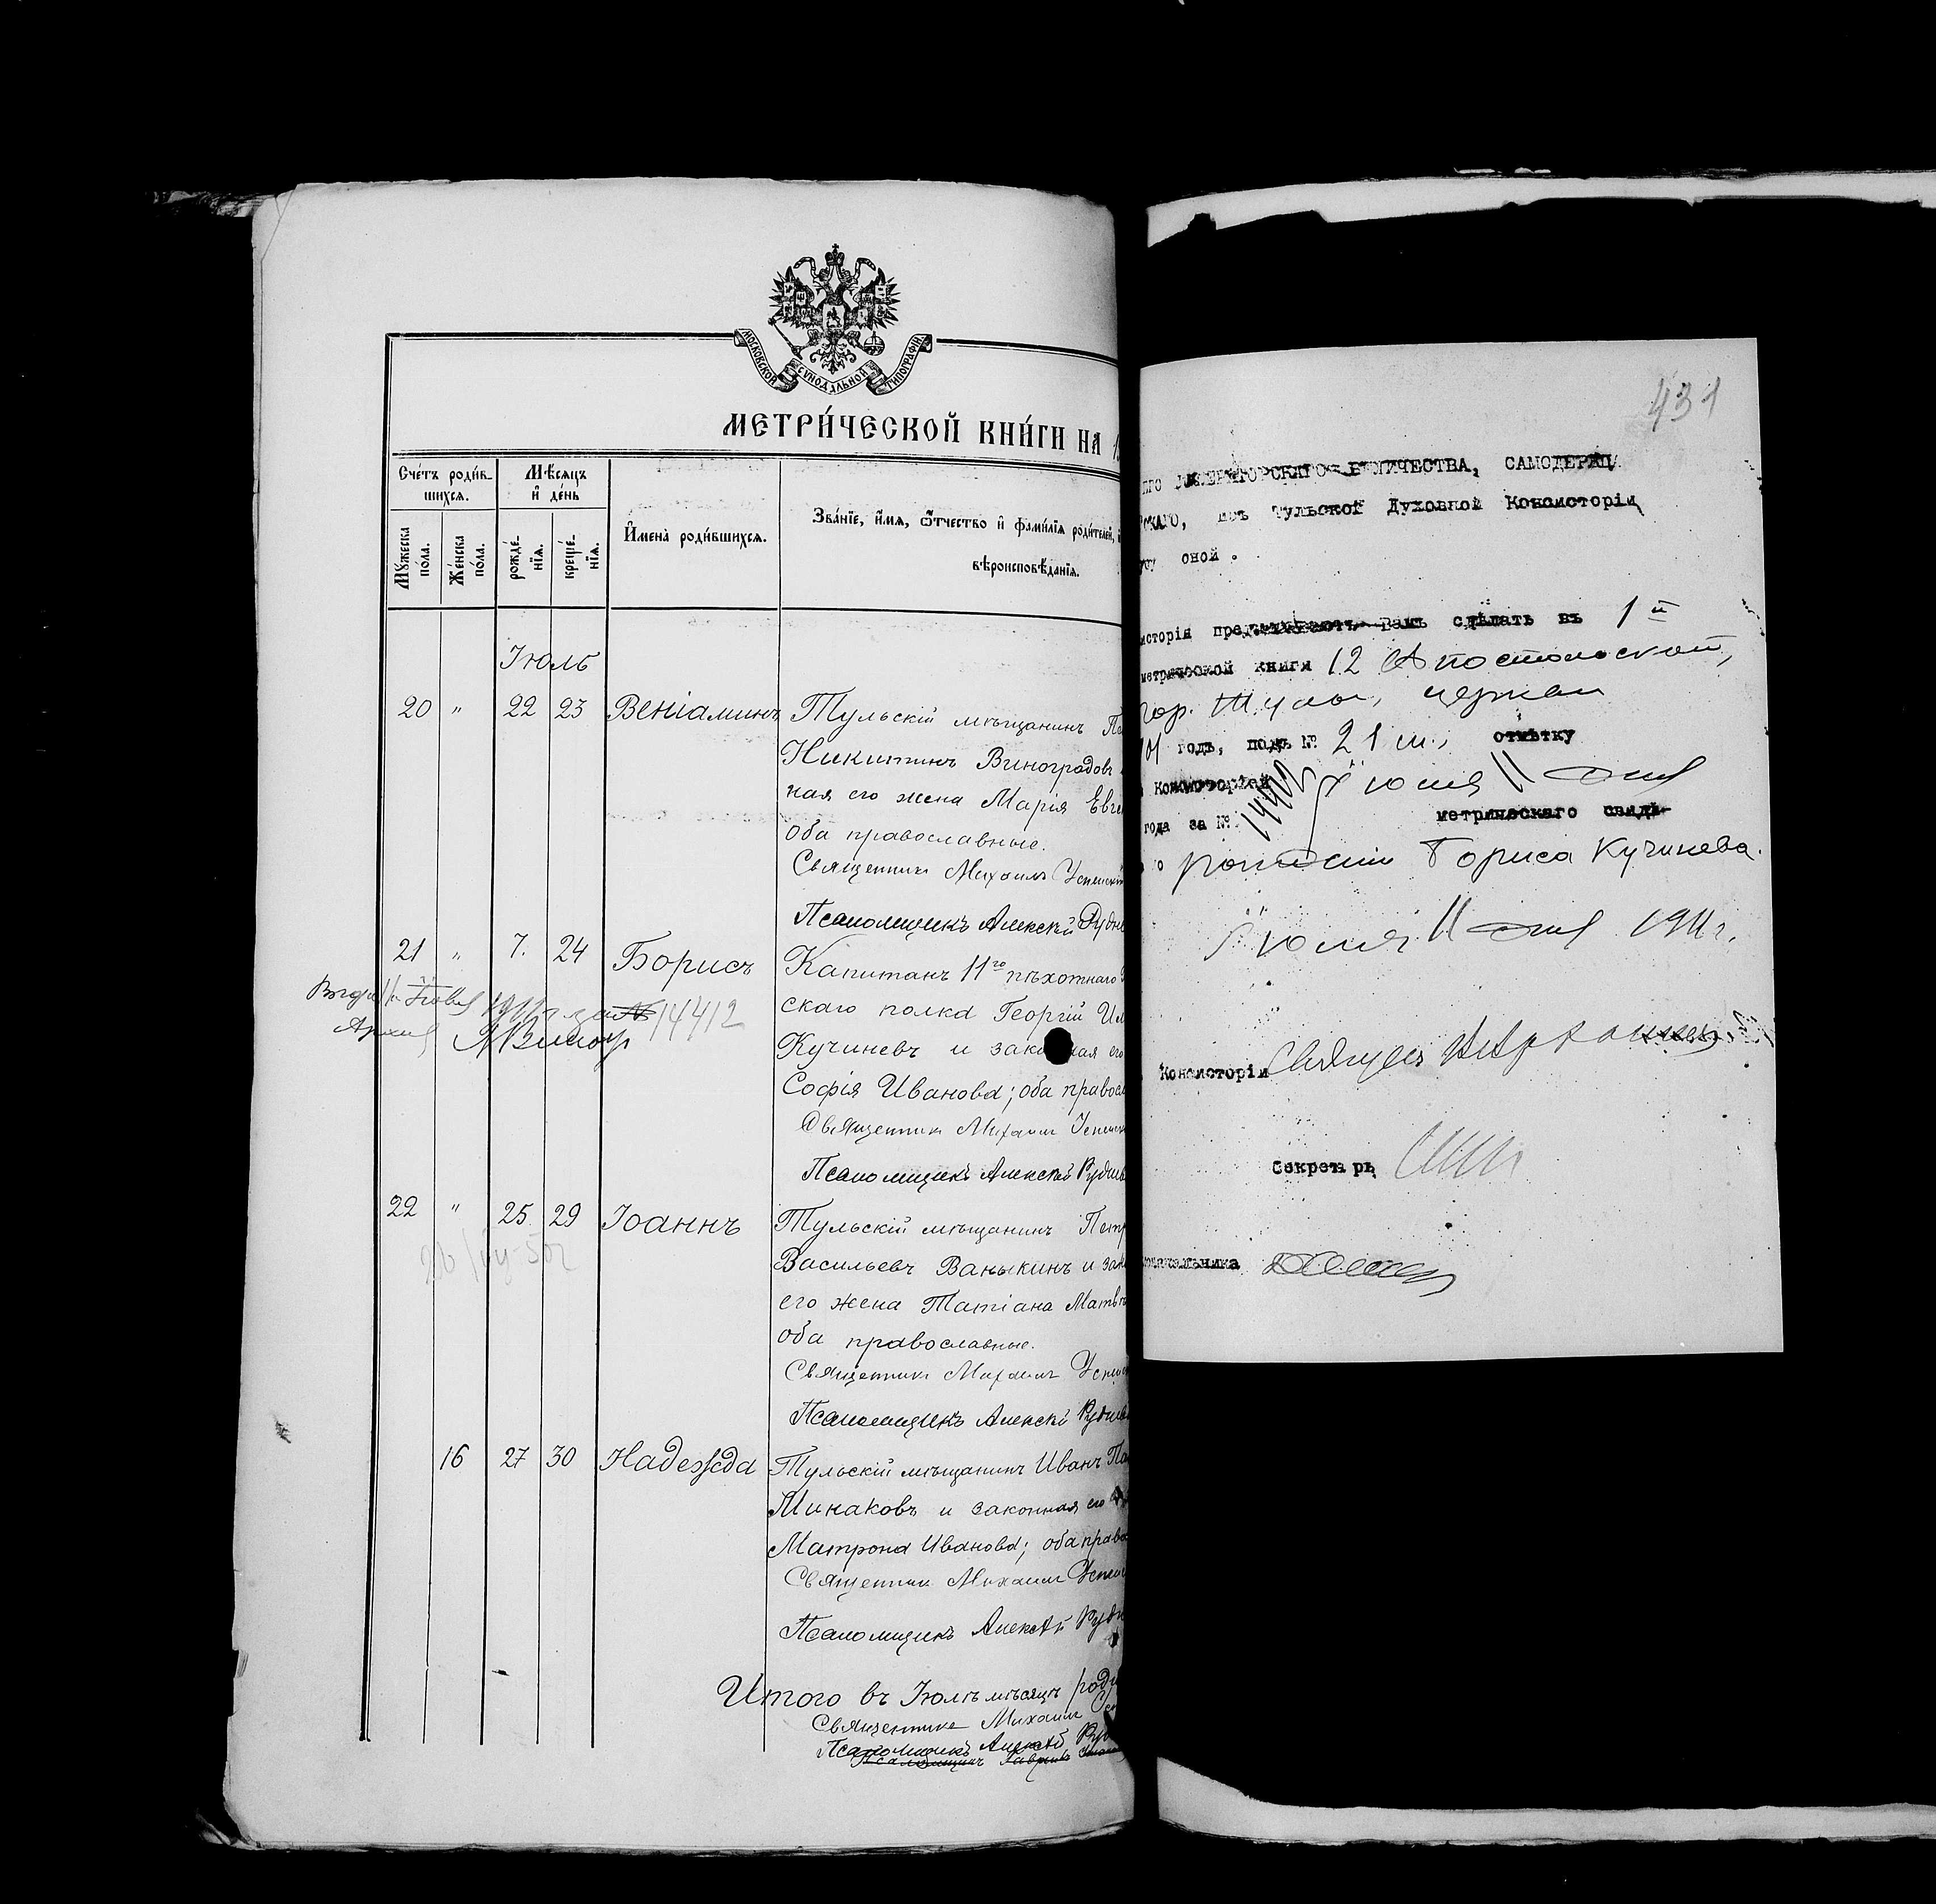 МОСКОВСКОЙ СѴНОДАЛЬНОЙ ТИПОГРАФІИ
МЕТРИ́ЧЕСКОЙ КНИ́ГИ НА 1
Сче́тъ роди́в-
шихся.
Мѣ́сяцъ
и҆ де́нь
Мꙋ́жеска
по́ла.
Же́нска
по́ла.
рожде́-
нїя.
креще́-
нїя.
И҆мена̀ роди́вшихся.
Зва́нїе, и҆́мя, ѻ҆́тчество и҆ фами́лїя роди́телей,
вѣроисповѣ́данїя.
Іюль
20 " 22 23 Веніаминъ Тульскій мѣщанинъ
Никитинъ Виноградовъ
ная его жена Марія
оба православные.
Священникъ Михаилъ Успенскій
Псаломщикъ Алексѣй
21 " 7. 24 Борисъ Капитанъ 11го пѣхотнаго
скаго полка Георгій
Кучиневъ и законная его
Софія Иванова; оба
Священникъ Михаилъ
Псаломщикъ Алексѣй
1911 г. за № 14412
22 " 25 29 Іоаннъ Тульскій мѣщанинъ
Васильевъ Ваныкинъ и
его жена Татіана
оба православные.
Священникъ Михаилъ
Псаломщикъ Алексѣй
16 27 30 Надежда Тульскій мѣщанинъ Иванъ
Минаковъ и законная его
Матрона Иванова; оба
Священникъ Михаилъ
Псаломщикъ Алексѣй
Итого въ Іюлѣ мѣсяцѣ
Священникъ Михаилъ
Псаломщикъ Алексѣй
431
ИМПЕРАТОРСКАГО ВЕЛИЧЕСТВА, САМОДЕРЖЦ
СКАГО, изъ Тульской Духовной Консисторіи
оной.
исторія предписываетъ Вамъ сдѣлать въ 1й
метрической книги 12 Апостольской,
гор. Тулы, церкви
годъ, подъ № 21 м., отмѣтку
Консисторіей Іюля 11 дня
года за № 14412 метрическаго свидѣ-
о рожденіи Бориса Кучинева.
Іюля 11 дня 1911 г.
Консисторіи
Секретарь